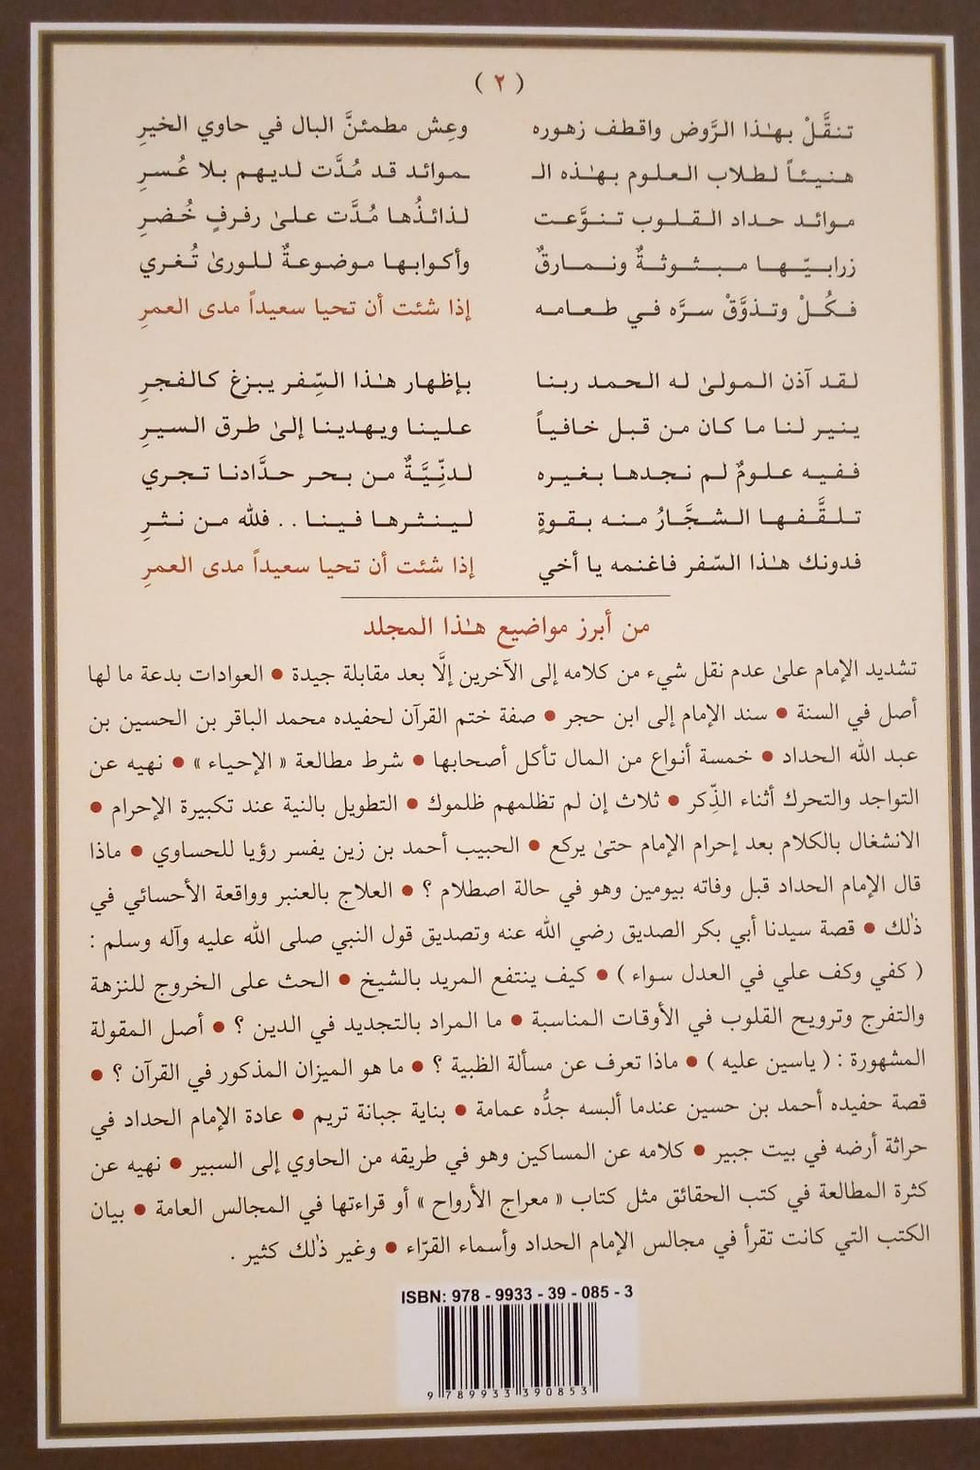 ( ٢ )
تنقَّلْ بهٰذا الرَّوض واقطف زهوره وعِش مطمئنَّ البال في حاوي الخيرِ
هنيئاً لطلاب العلوم بهٰذه الـ ـموائد قد مُدَّت لديهم بلا عُسرِ
موائد حداد القلوب تنوَّعت لذائذُها مُدَّت علىٰ رفرفٍ خُضرِ
زرابيّها مبثوثةٌ ونمارقٌ وأكوابها موضوعةٌ للورىٰ تُغري
فكُلْ وتذوَّقْ سرَّه في طعامه إذا شئت أن تحيا سعيداً مدى العمرِ
لقد آذن المولىٰ له الحمد ربنا بإظهار هٰذا السِّفر يبزغ كالفجرِ
ينير لنا ما كان من قبل خافياً علينا ويهدينا إلىٰ طرق السيرِ
ففيه علومٌ لم نجدها بغيره لدنِّيَّةٌ من بحر حدَّادنا تجري
تلقَّفها الشجَّارُ منه بقوةٍ لينثرها فينا . . فللّٰه من نثرِ
فدونك هٰذا السّفر فاغنمه يا أخي إذا شئت أن تحيا سعيداً مدى العمرِ
من أبرز مواضيع هٰذا المجلد
تشديد الإمام علىٰ عدم نقل شيء من كلامه إلى الآخرين إلَّا بعد مقابلة جيدة • العوادات بدعة ما لها
أصل في السنة • سند الإمام إلى ابن حجر • صفة ختم القرآن لحفيده محمد الباقر بن الحسين بن
عبد الله الحداد • خمسة أنواع من المال تأكل أصحابها • شرط مطالعة « الإحياء » • نهيه عن
التواجد والتحرك أثناء الذِّكر • ثلاث إن لم تظلمهم ظلموك • التطويل بالنية عند تكبيرة الإحرام •
الانشغال بالكلام بعد إحرام الإمام حتىٰ يركع • الحبيب أحمد بن زين يفسر رؤيا للحساوي • ماذا
قال الإمام الحداد قبل وفاته بيومين وهو في حالة اصطلام ؟ • العلاج بالعنبر وواقعة الأحسائي في
ذٰلك • قصة سيدنا أبي بكر الصديق رضي الله عنه وتصديق قول النبي صلى الله عليه وآله وسلم :
( كفي وكف علي في العدل سواء ) • كيف ينتفع المريد بالشيخ • الحث على الخروج للنزهة
والتفرج وترويح القلوب في الأوقات المناسبة • ما المراد بالتجديد في الدين ؟ • أصل المقولة
المشهورة : ( ياسين عليه ) • ماذا تعرف عن مسألة الظبية ؟ • ما هو الميزان المذكور في القرآن ؟ •
قصة حفيده أحمد بن حسين عندما ألبسه جدُّه عمامة • بناية جبانة تريم • عادة الإمام الحداد في
حراثة أرضه في بيت جبير • كلامه عن المساكين وهو في طريقه من الحاوي إلى السبير • نهيه عن
كثرة المطالعة في كتب الحقائق مثل كتاب « معراج الأرواح » أو قراءتها في المجالس العامة • بيان
الكتب التي كانت تقرأ في مجالس الإمام الحداد وأسماء القرّاء • وغير ذٰلك كثير .
ISBN: 978 - 9933 - 39 - 085 - 3
9 789933 390853